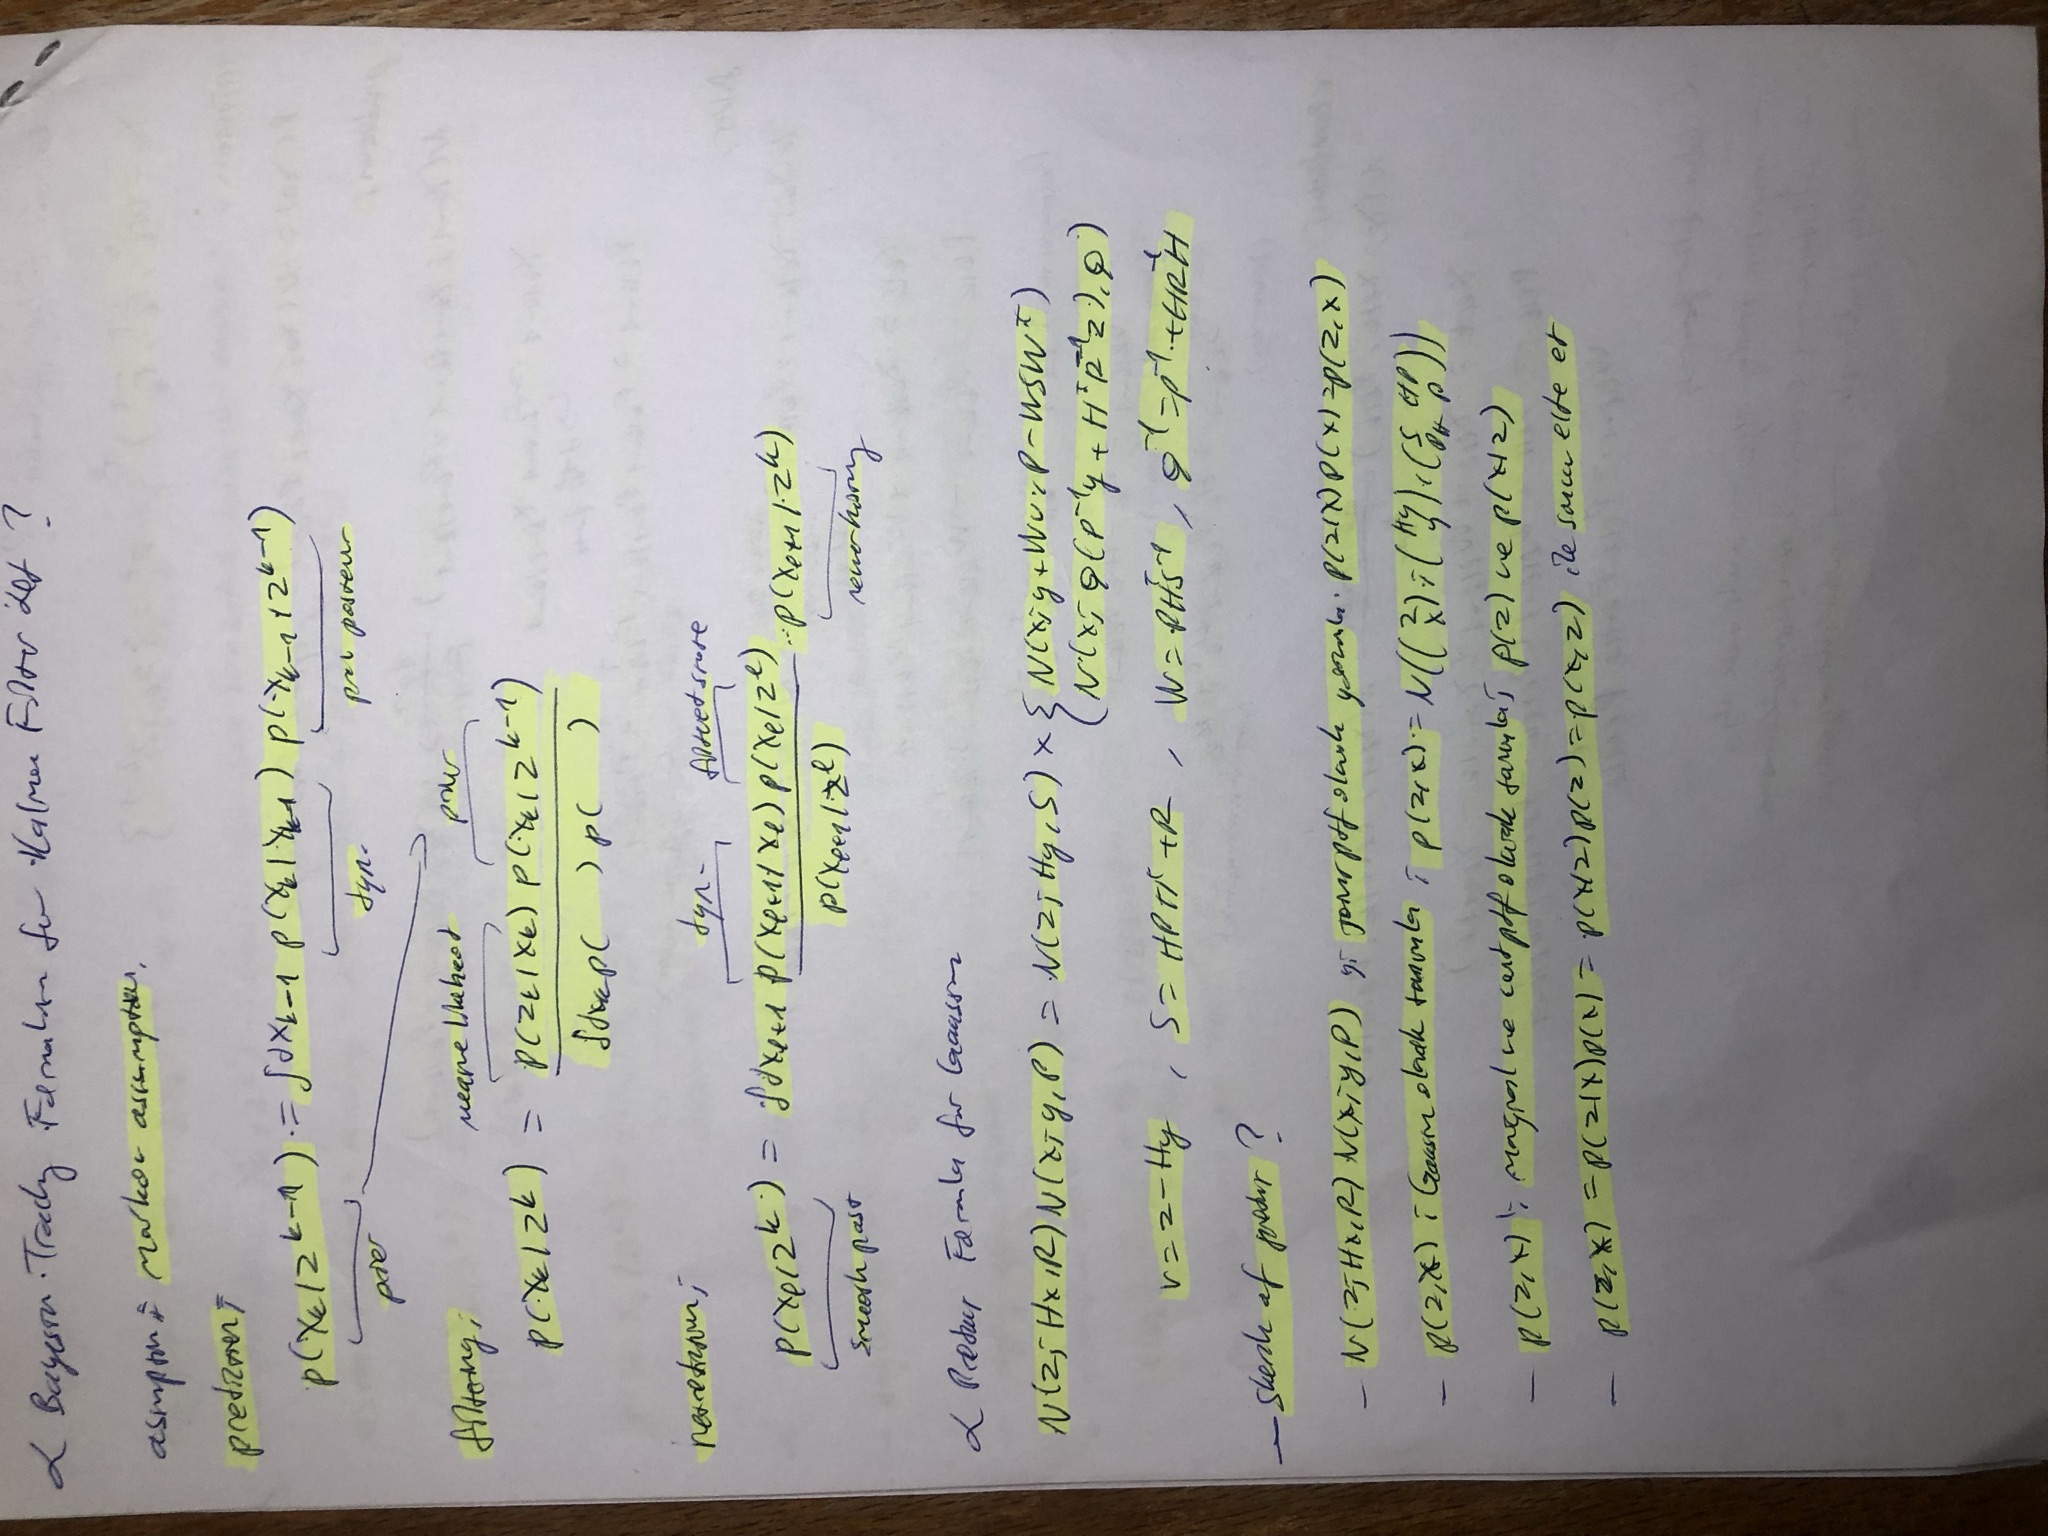 α Bayesian Tracking Formalism for Kalman Filter Def ?
assumption : markov assumption,
prediction ;
p(x_k | Z^{k-1}) = ∫dx_{k-1} p(x_k | x_{k-1}) p(x_{k-1} | Z^{k-1})
prior dyn.
filtering ;
prior
p(x_k | Z^k) = p(z_k | x_k) p(x_k | Z^{k-1}) / ∫dx_k p( ) p( )
retrodiction ;
dyn- filtered state
p(x_l | Z^k) = ∫dx_{l+1} p(x_{l+1} | x_l) p(x_l | Z^l) / p(x_{l+1} | Z^l) · p(x_{l+1} | Z^k)
α Product Formula for Gaussian
N(z; Hx, R) N(x; y, P) = N(z; Hy, S) x { N(x; y + Wv, P - WSW^T)
N(x; Q(P^{-1}y + H^T R^{-1} z), Q)
v = z - Hy , S = HPH^T + R , W = PH^T S^{-1} , Q^{-1} = P^{-1} + HR^{-1}H
— Sketch of product ?
— N(z; Hx, R) N(x; y, P) yi joint pdf olarak yazımla. p(z|x) p(x) = p(z,x)
— p(z,x) i Gaussian olarak tanımla ; p(z,x) = N((z x); (Hy y), (S HP PH P))
— p(z,x) ; marginal ve cond pdf olarak tanımla ; p(z) ve p(x|z)
— p(z,x) = p(z|x) p(x) = p(x|z) p(z) = p(x,z) ile sonucu elde et